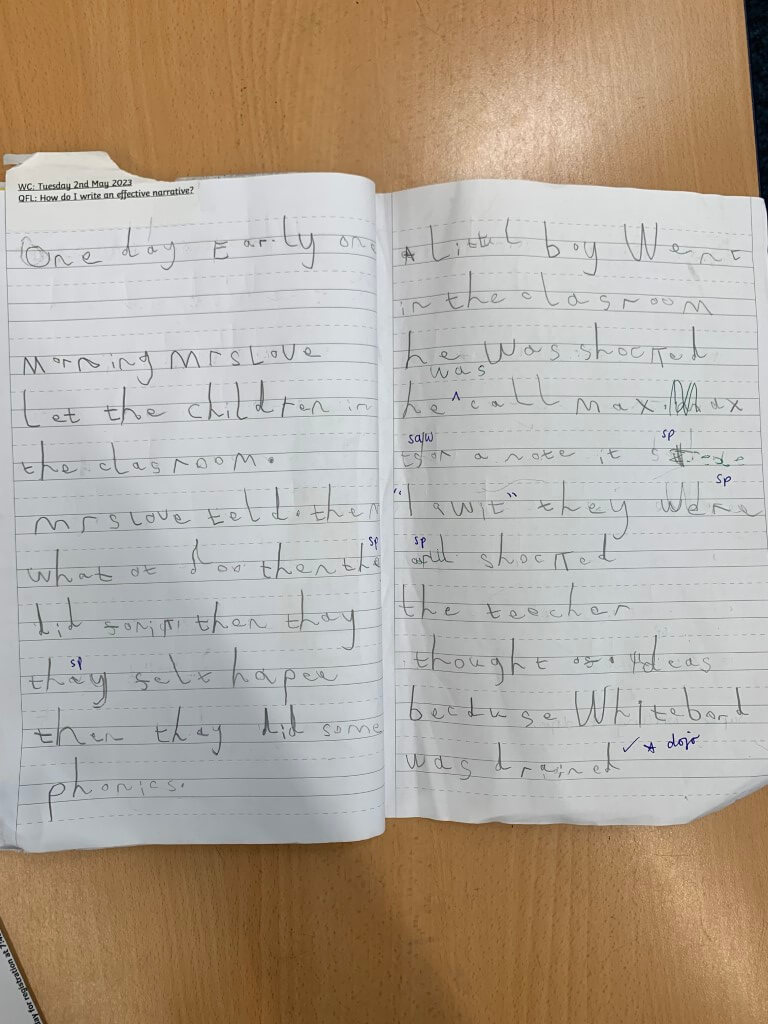 WC: Tuesday 2nd May 2023
QFL: How do I write an effective narrative?
One day Early one
Morning Mrs Love
Let the children in
the clasroom.
Mrs Love teld. then
what ot doo then the
sp
did then thay
sp
thay felt hapee
then thay did some
phonics.
A littul boy Went
in the clasroom
he was shocked
was
he ^ call max. Max
saw
sp
a note it
sp
"I awit" they Were
sp
shocked
the teecher
thought of ideas
because Whitebord
was drained ✓ * dojo
day for registration at